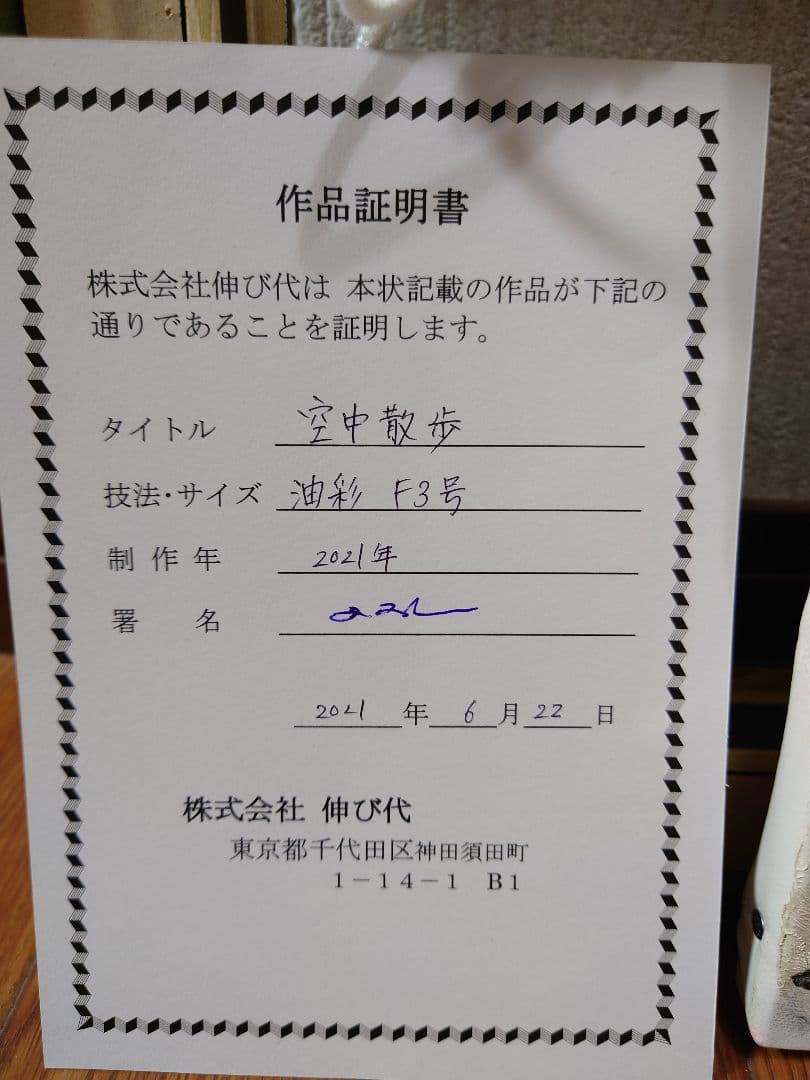 作品証明書
株式会社伸び代は 本状記載の作品が下記の
通りであることを証明します。
タイトル 空中散歩
技法・サイズ 油彩 F3号
制作年 2021年
署名
2021年6月22日
株式会社 伸び代
東京都千代田区神田須田町
1-14-1 B1